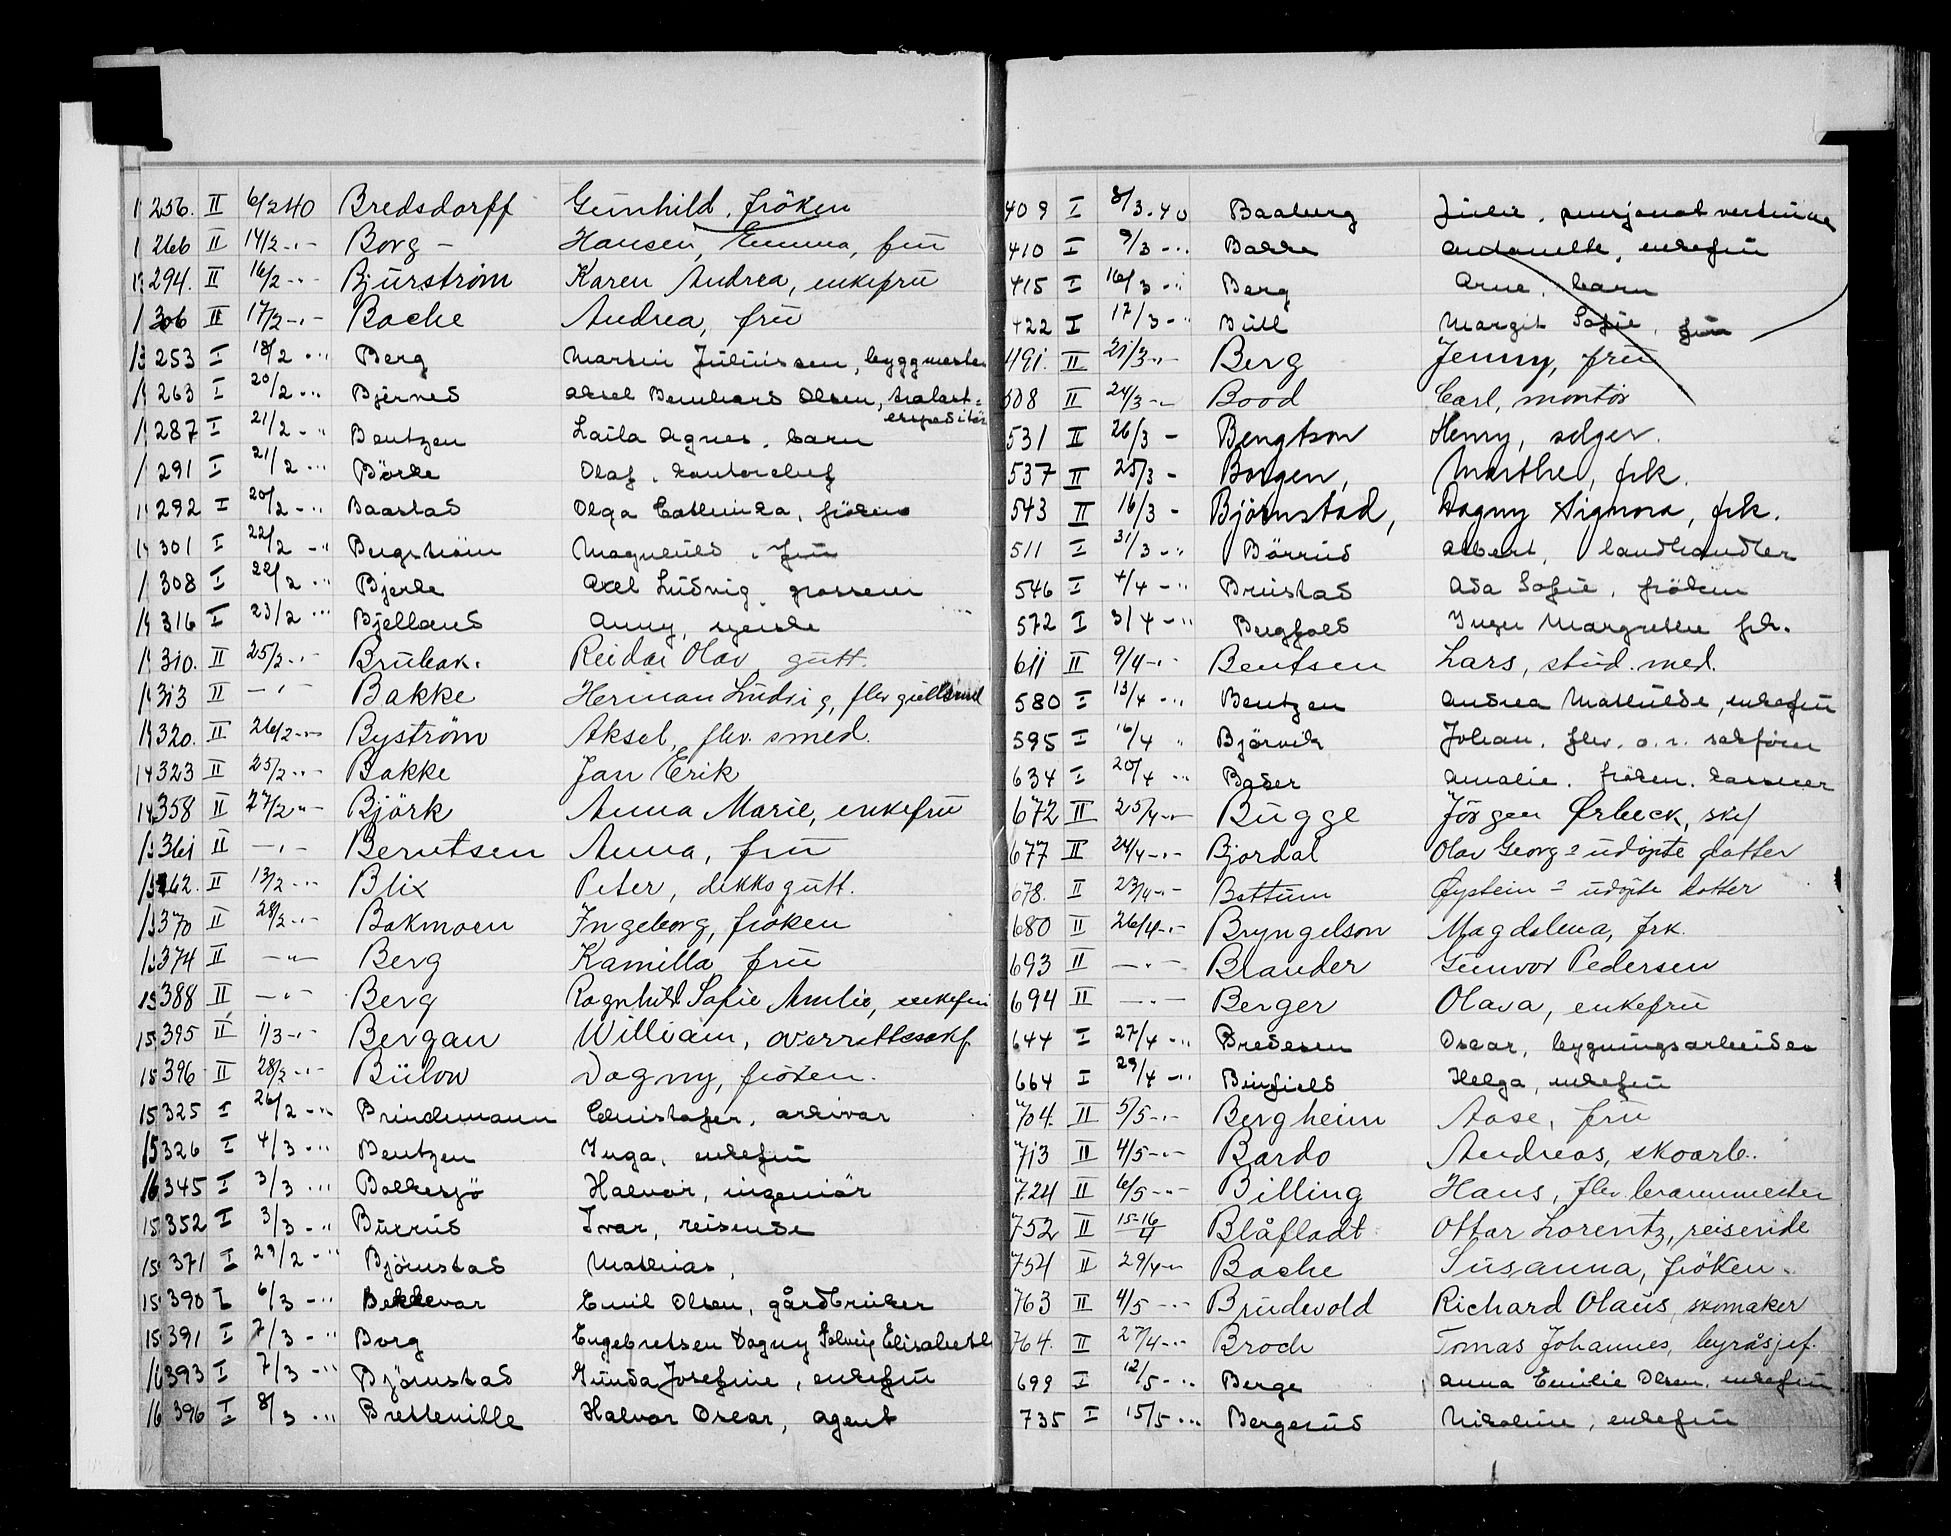 256. II 6/2 40 Bredsdorff Gunhild, fröken
266 II 14/2 -"- Borg - Hansen, Emma, fru
294. II 16/2 -"- Bjurström Karen Andrea, enkefru
306 II 17/2 -"- Bache Andrea, fru
253 I 18/2 -"- Berg Martin Juliussen, byggmester
263 I 20/2 -"- Bjernes Aksel Bernhard Olsen, trelast-
expeditör
287 I 21/2 -"- Bentzen Laila Agnes, barn
291 I 21/2 -"- Börke Olaf, kontorchef
292 I 20/2 -"- Baastad Olga Cathinka, fröken
301 I 22/2 -"- Bergström Magnhild, fru
308 I 22/2 -"- Bjerke Axel Ludvig, grosserer
316 I 23/2 -"- Bjelland Anny, syerske
310. II 25/2 -"- Brubak. Reidar Olav, gutt.
313 II -"- Bakke Herman Ludvig, flev gullsmed
320. II 26/2 -"- Byström Aksel, flev. smed.
323 II 25/2 -"- Bakke Jan Erik
358 II 27/2 -"- Björk Anna Marie, enkefru
361 II -"- Berntsen Anna, fru
362. II 13/2 -"- Blix Peter, dekksgutt.
370 II 28/2 -"- Bakmoen Ingeborg, fröken
374 II -"- Berg Kamilla fru
388 II -"- Berg Ragnhild Sofie Amlie, enkefru
395 II 1/3 -"- Bergan William, overrettssakf.
396 II 28/2 -"- Bülow Dagny, fröken.
325 I 26/2 -"- Brinchmann Christofer, arkivar
326 I 4/3 -"- Bentzen Inga, enkefru
345 I 3/3 -"- Bolkesjö Halvor, ingeniör
352 I 3/3 -"- Burud Ivar, reisende
371 I 29/2 -"- Björnstad Mathias,
390 I 6/3 -"- Bekkevar Emil Olsen, gårdbruker
391 I 7/3 -"- Borg Engebretsen Dagny Solveig Elisabeth
393 I 7/3 -"- Björnstad Gunda Josefine, enkefru
396 I 8/3 -"- Bretteville Halvor Oscar, agent
409 I 8/3 - 40 Baaberg Julie, pensjonatvertinne
410 I 9/3 -"- Bakke Antonette, enkefru
415 I 16/3 -"- Berg Arne, barn
422 I 17/3 -"- Bull Margit Sofie, fru
491. II 21/3 -"- Berg Jenny, fru
508 II 24/3 -"- Bood Carl, montör
531 II 26/3 - Bengtson Henry, selger.
537 II 25/3 - Borgen, Marthe, frk.
543 II 16/3 - Björnstad, Dagny Signora, frk.
511 I 31/3 -"- Börrud Albert, landhandler
546 I 4/4 -"- Brustad Ada Sofie, fröken
572 I 3/4 -"- Bergfald Inger Margrethe frk.
611 II 9/4 -"- Bentsen Lars, stud. med.
580 I 13/4 -"- Bentzen Andrea Mathilde, enkefru
595 I 16/4 " Björvik Johan, flev. o.r. sakförer
634 I 20/4 -"- Bader Amalie, fröken, kasserer
672 II 25/4 -"- Bugge Jörgen Ørbeck, skf
677 II 24/4 -"- Bjordal Olav Georg's udöpte datter
678. II 23/4 -"- Bottum Øystein's udöpte datter
680 II 26/4 -"- Bryngelson Magdalena, frk.
693 II -"- Brander Gunvor Pedersen
694 II -"- Berger Olava, enkefru
644 I 27/4 -"- Bredesen Oscar, bygningsarbeider
664 I 29/4 -"- Binfield Helga, enkefru
704. II 5/5 -"- Bergheim Aase, fru
713 II 4/5 -"- Bardo Andreas, skoarb.
724 II 6/5 -"- Billing Hans, flev. brannmester
752 II 15-16/4 Blåfladt Ottar Lorentz, reisende
754 II 29/4 -"- Bache Susanna, fröken.
763 II 4/5 -"- Brudevold Richard Olaus, skomaker
764. II 27/4 -"- Broch Tomas Johannes, byråsjef.
699 I 12/5 -"- Berge Anna Emilie Olsen, enkefru
735 I 15/5 -"- Bergerud Nikoline, enkefru